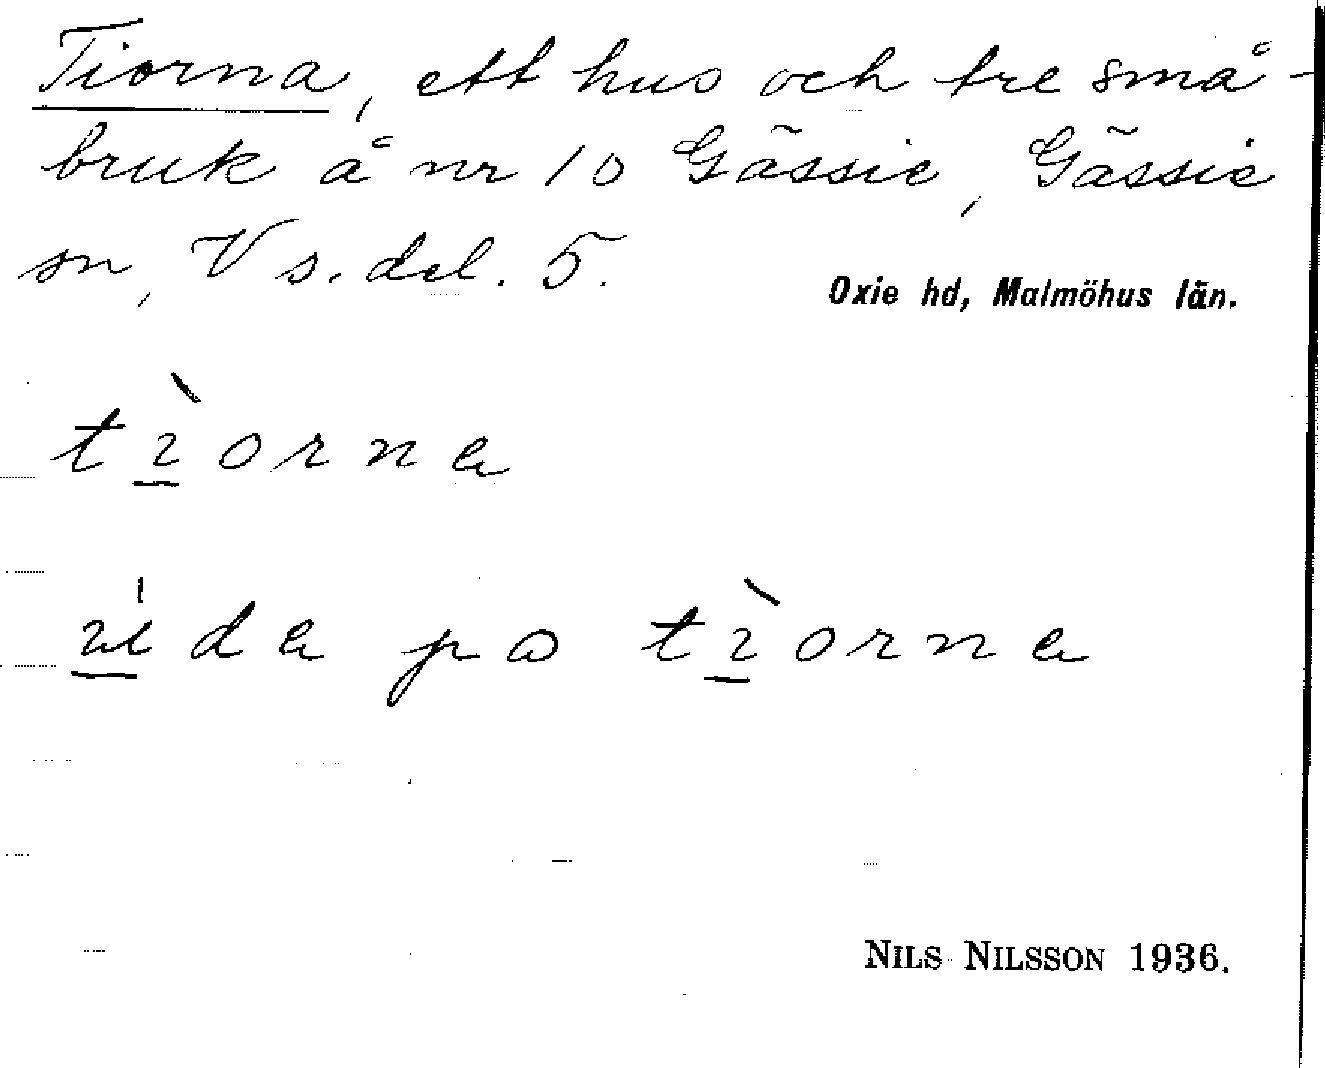 Tiorna, ett hus och tre små-
bruk å nr 10 Gässie, Gässie
sn, V s. del. 5.
Oxie hd, Malmöhus län.
tìorna
uída po tìorna
NILS NILSSON 1936.